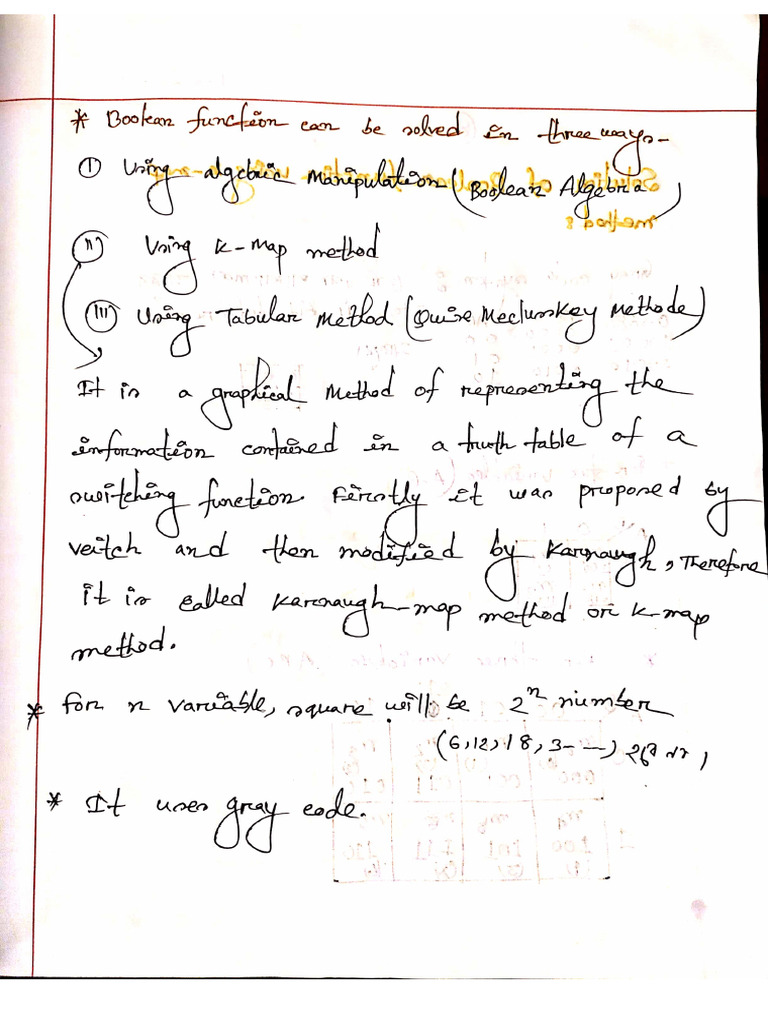 * Boolean function can be solved in three ways-
(I) Using algebric Manipulation (Boolean Algebra)
(II) Using K-Map method
(III) Using Tabular Method (Quise Meclusskey Methode)
It is a graphical Method of representing the
information contained in a truth table of a
switching function. Firstly it was proposed by
veitch and then modified by Karnaugh, Therefore
it is called Karnaugh-map method or K-map
method.
* for n variable, square will be 2ⁿ number
(6,12,18,3- --) হবে না,
* It uses gray code.